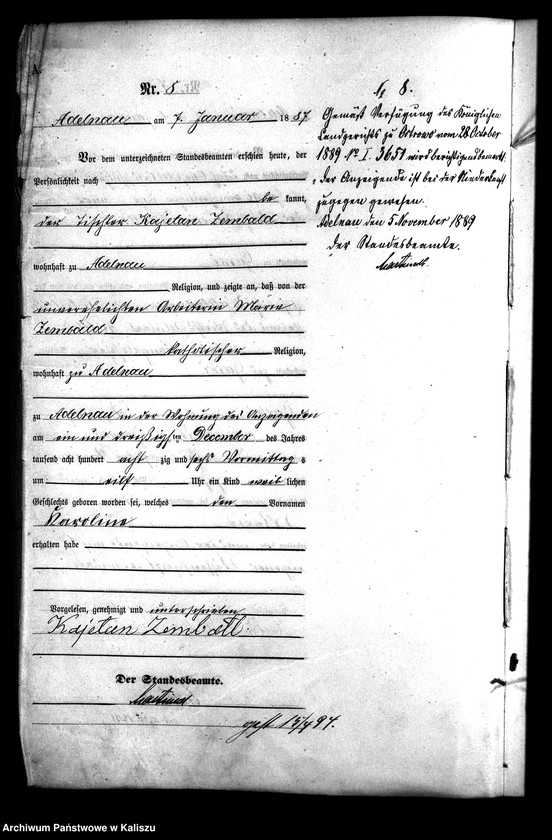 Nr. 8
Adelnau am 7. Januar 1887
Vor dem unterzeichneten Standesbeamten erschien heute, der
Persönlichkeit nach
be kannt,
der Tischler Kajetan Zembald
wohnhaft zu Adelnau
Religion, und zeigte an, daß von der
unverehelichten Arbeiterin Marie
Zembald
katholischer Religion,
wohnhaft zu Adelnau
zu Adelnau in der Wohnung des Anzeigenden
am ein und dreißigsten December des Jahres
tausend acht hundert acht zig und sechs Vormittag s
um eilf Uhr ein Kind weib lichen
Geschlechts geboren worden sei, welches den Vornamen
Karoline
erhalten habe
Vorgelesen, genehmigt und unterschrieben
Kajetan
Der Standesbeamte.
gest 15/4 94.
8.
Gemäß Verfügung des Königlichen
Landgerichts zu Ostrowo vom 28 October
1889 No I. 3651 wird berichtigend bemerkt:
der Anzeigende ist bei der Niederkunft
zugegen gewesen.
Adelnau den 5 November 1889
Der Standesbeamte.
Archiwum Państwowe w Kaliszu